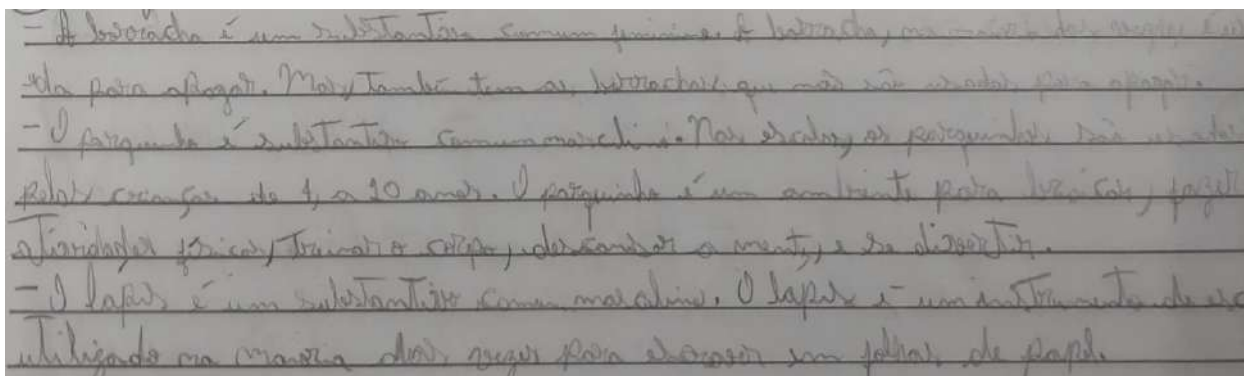 - A borracha é um substantivo comum feminino. A borracha, na maioria das vezes, é us
da para apagar. Mas, també tem as borrachas que não são usadas para apagar.
- O parquinho é substantivo comum masculi. Nas escolas, os parquinhos são usados
pelas crianças de 1, a 10 anos. O parquinho é um ambiente para brincar, fazer
atividades físicas, treinar o corpo, descansar a ment, e se divertir.
- O lapis é um substantivo comum masculino. O lapis é um instrumento de esc
utilizado na maoria das vezes para escrever em folhas de papel.